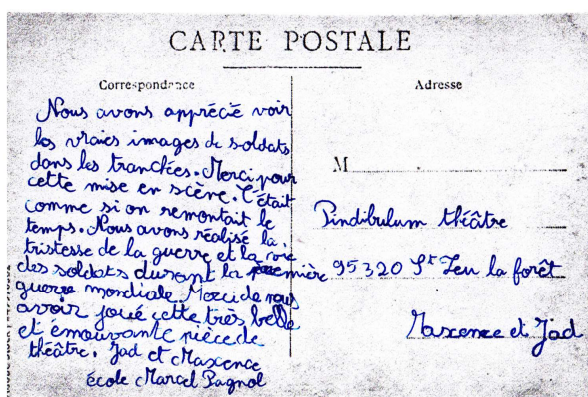 CARTE POSTALE
Correspondance
Adresse
Nous avons apprécié voir
les vraies images de soldats
dans les tranchées. Merci pour
cette mise en scène. C'était
comme si on remontait le
temps. Nous avons réalisé la
tristesse de la guerre et la vie
des soldats durant la première
guerre mondiale. Merci de nous
avoir joué cette très belle
et émouvante pièce de
théâtre. Jad et Maxence
école Marcel Pagnol
M
Pindibulum théâtre
95320 St Leu la forêt
Maxence et Jad